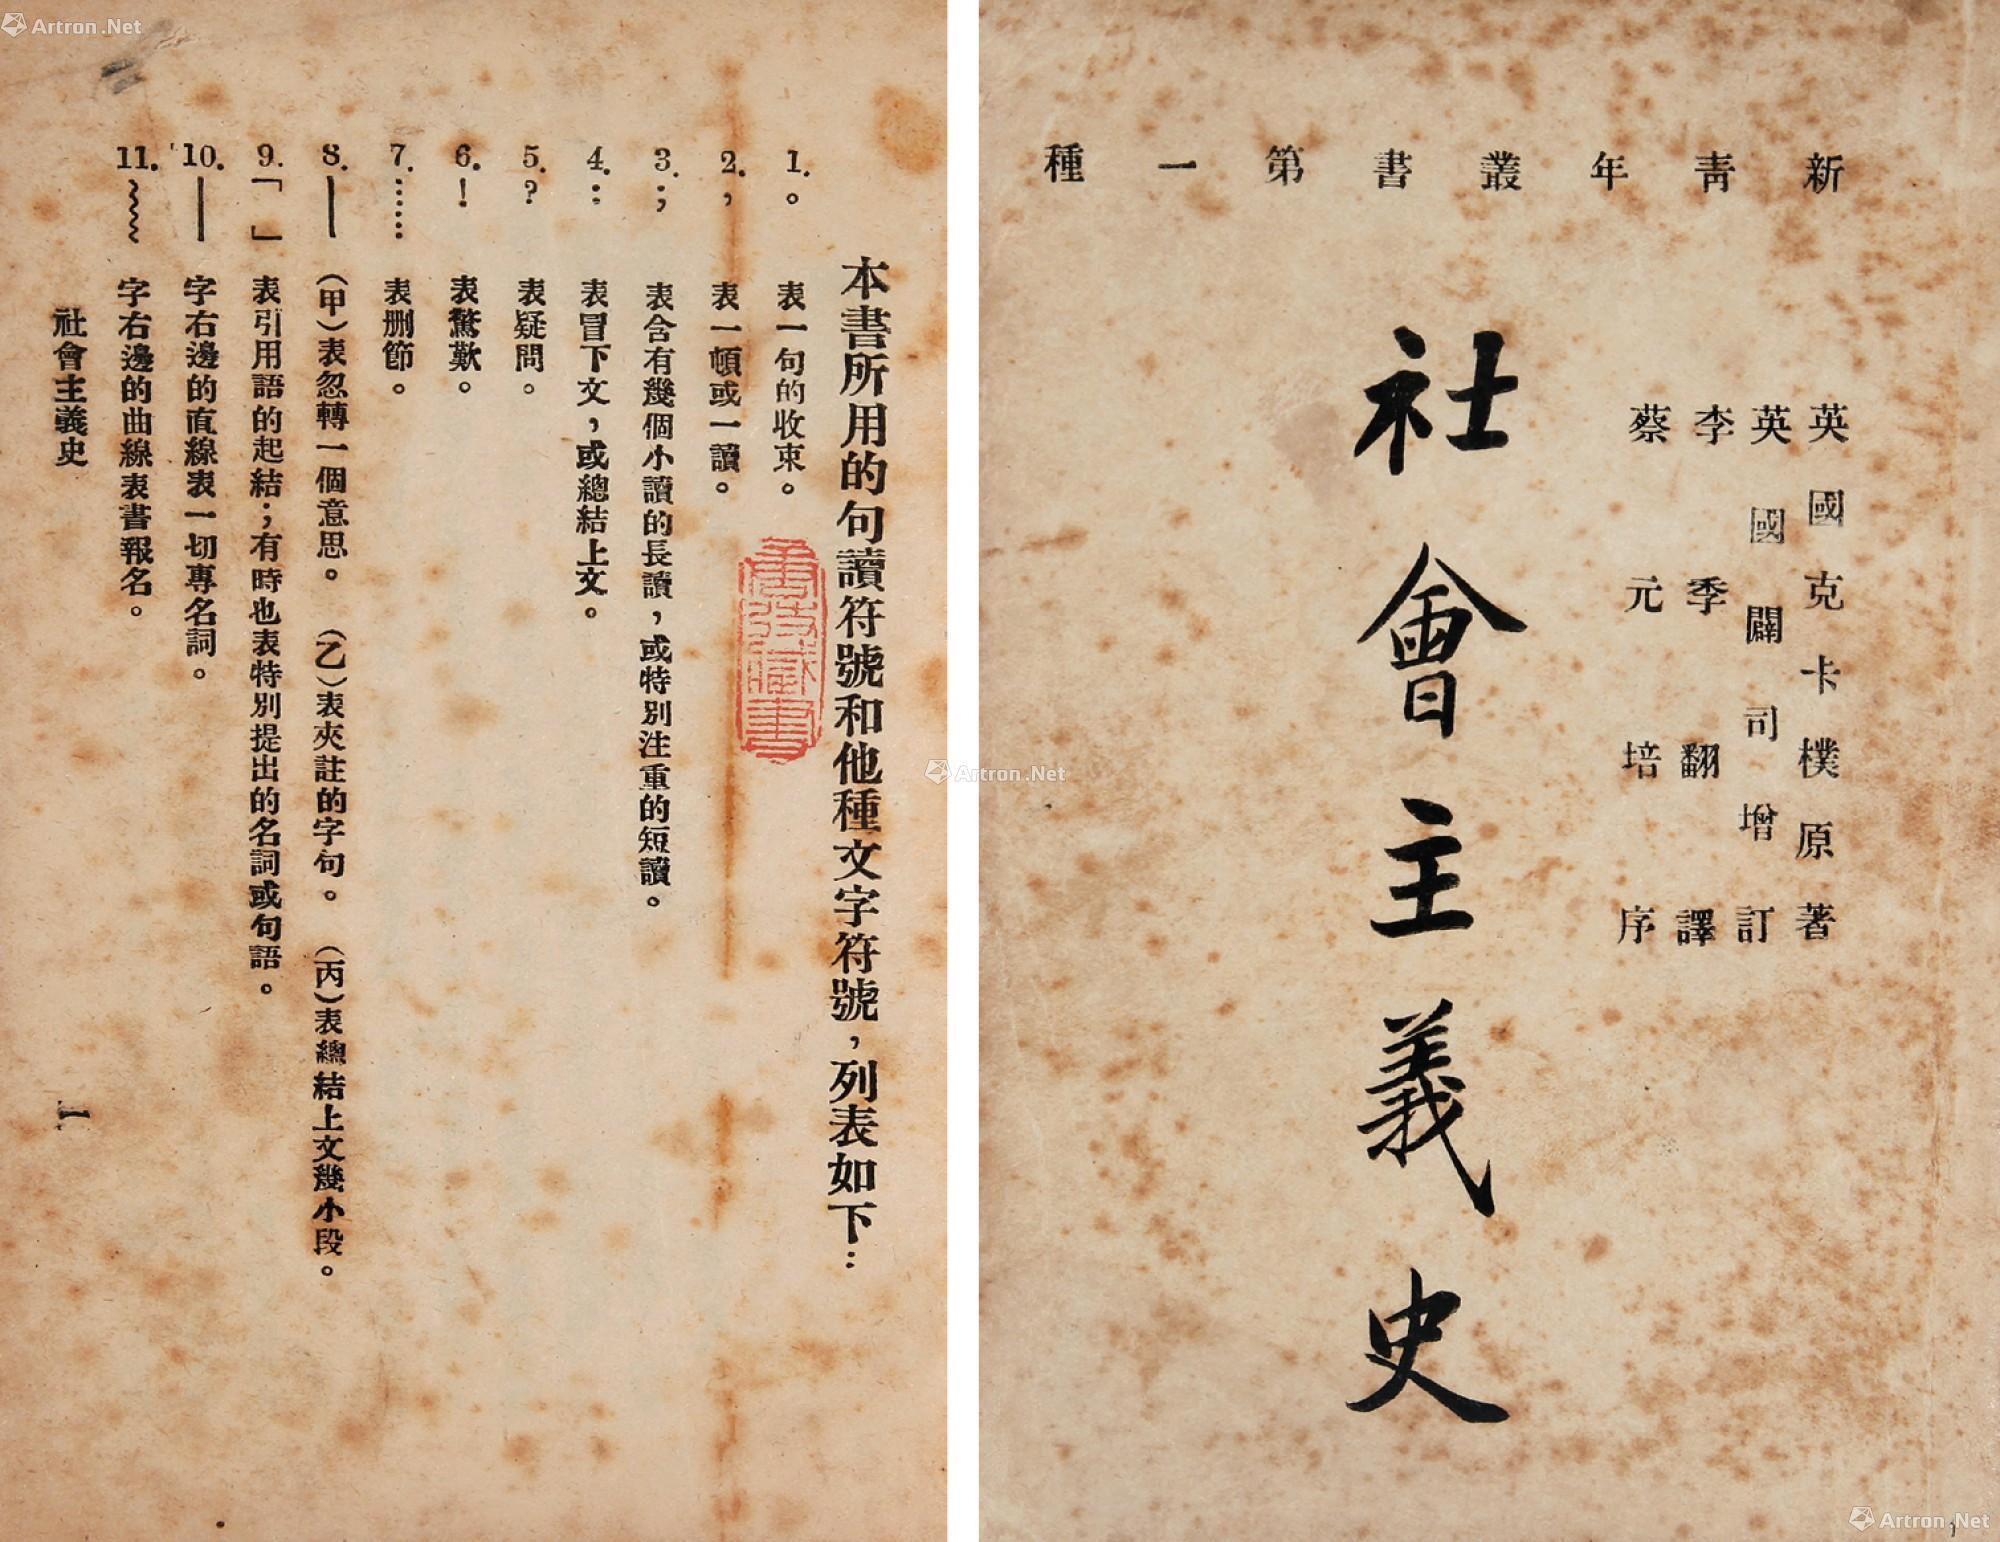 Artron.Net
新青年叢書第一種
英國克卡樸原著
英國闢司增訂
李季翻譯
蔡元培序
社會主義史
Artron.Net
本書所用的句讀符號和他種文字符號，列表如下：
1. 。 表一句的收束。
2. ， 表一頓或一讀。
3. ； 表含有幾個小讀的長讀，或特別注重的短讀。
4. ： 表冒下文，或總結上文。
5. ？ 表疑問。
6. ！ 表驚歎。
7. …… 表刪節。
8. — （甲）表忽轉一個意思。（乙）表夾註的字句。（丙）表總結上文幾小段。
9. 「 」 表引用語的起結；有時也表特別提出的名詞或句語。
10. — 字右邊的直線表一切專名詞。
11. ﹏ 字右邊的曲線表書報名。
社會主義史
一
藏書
Artron.Net